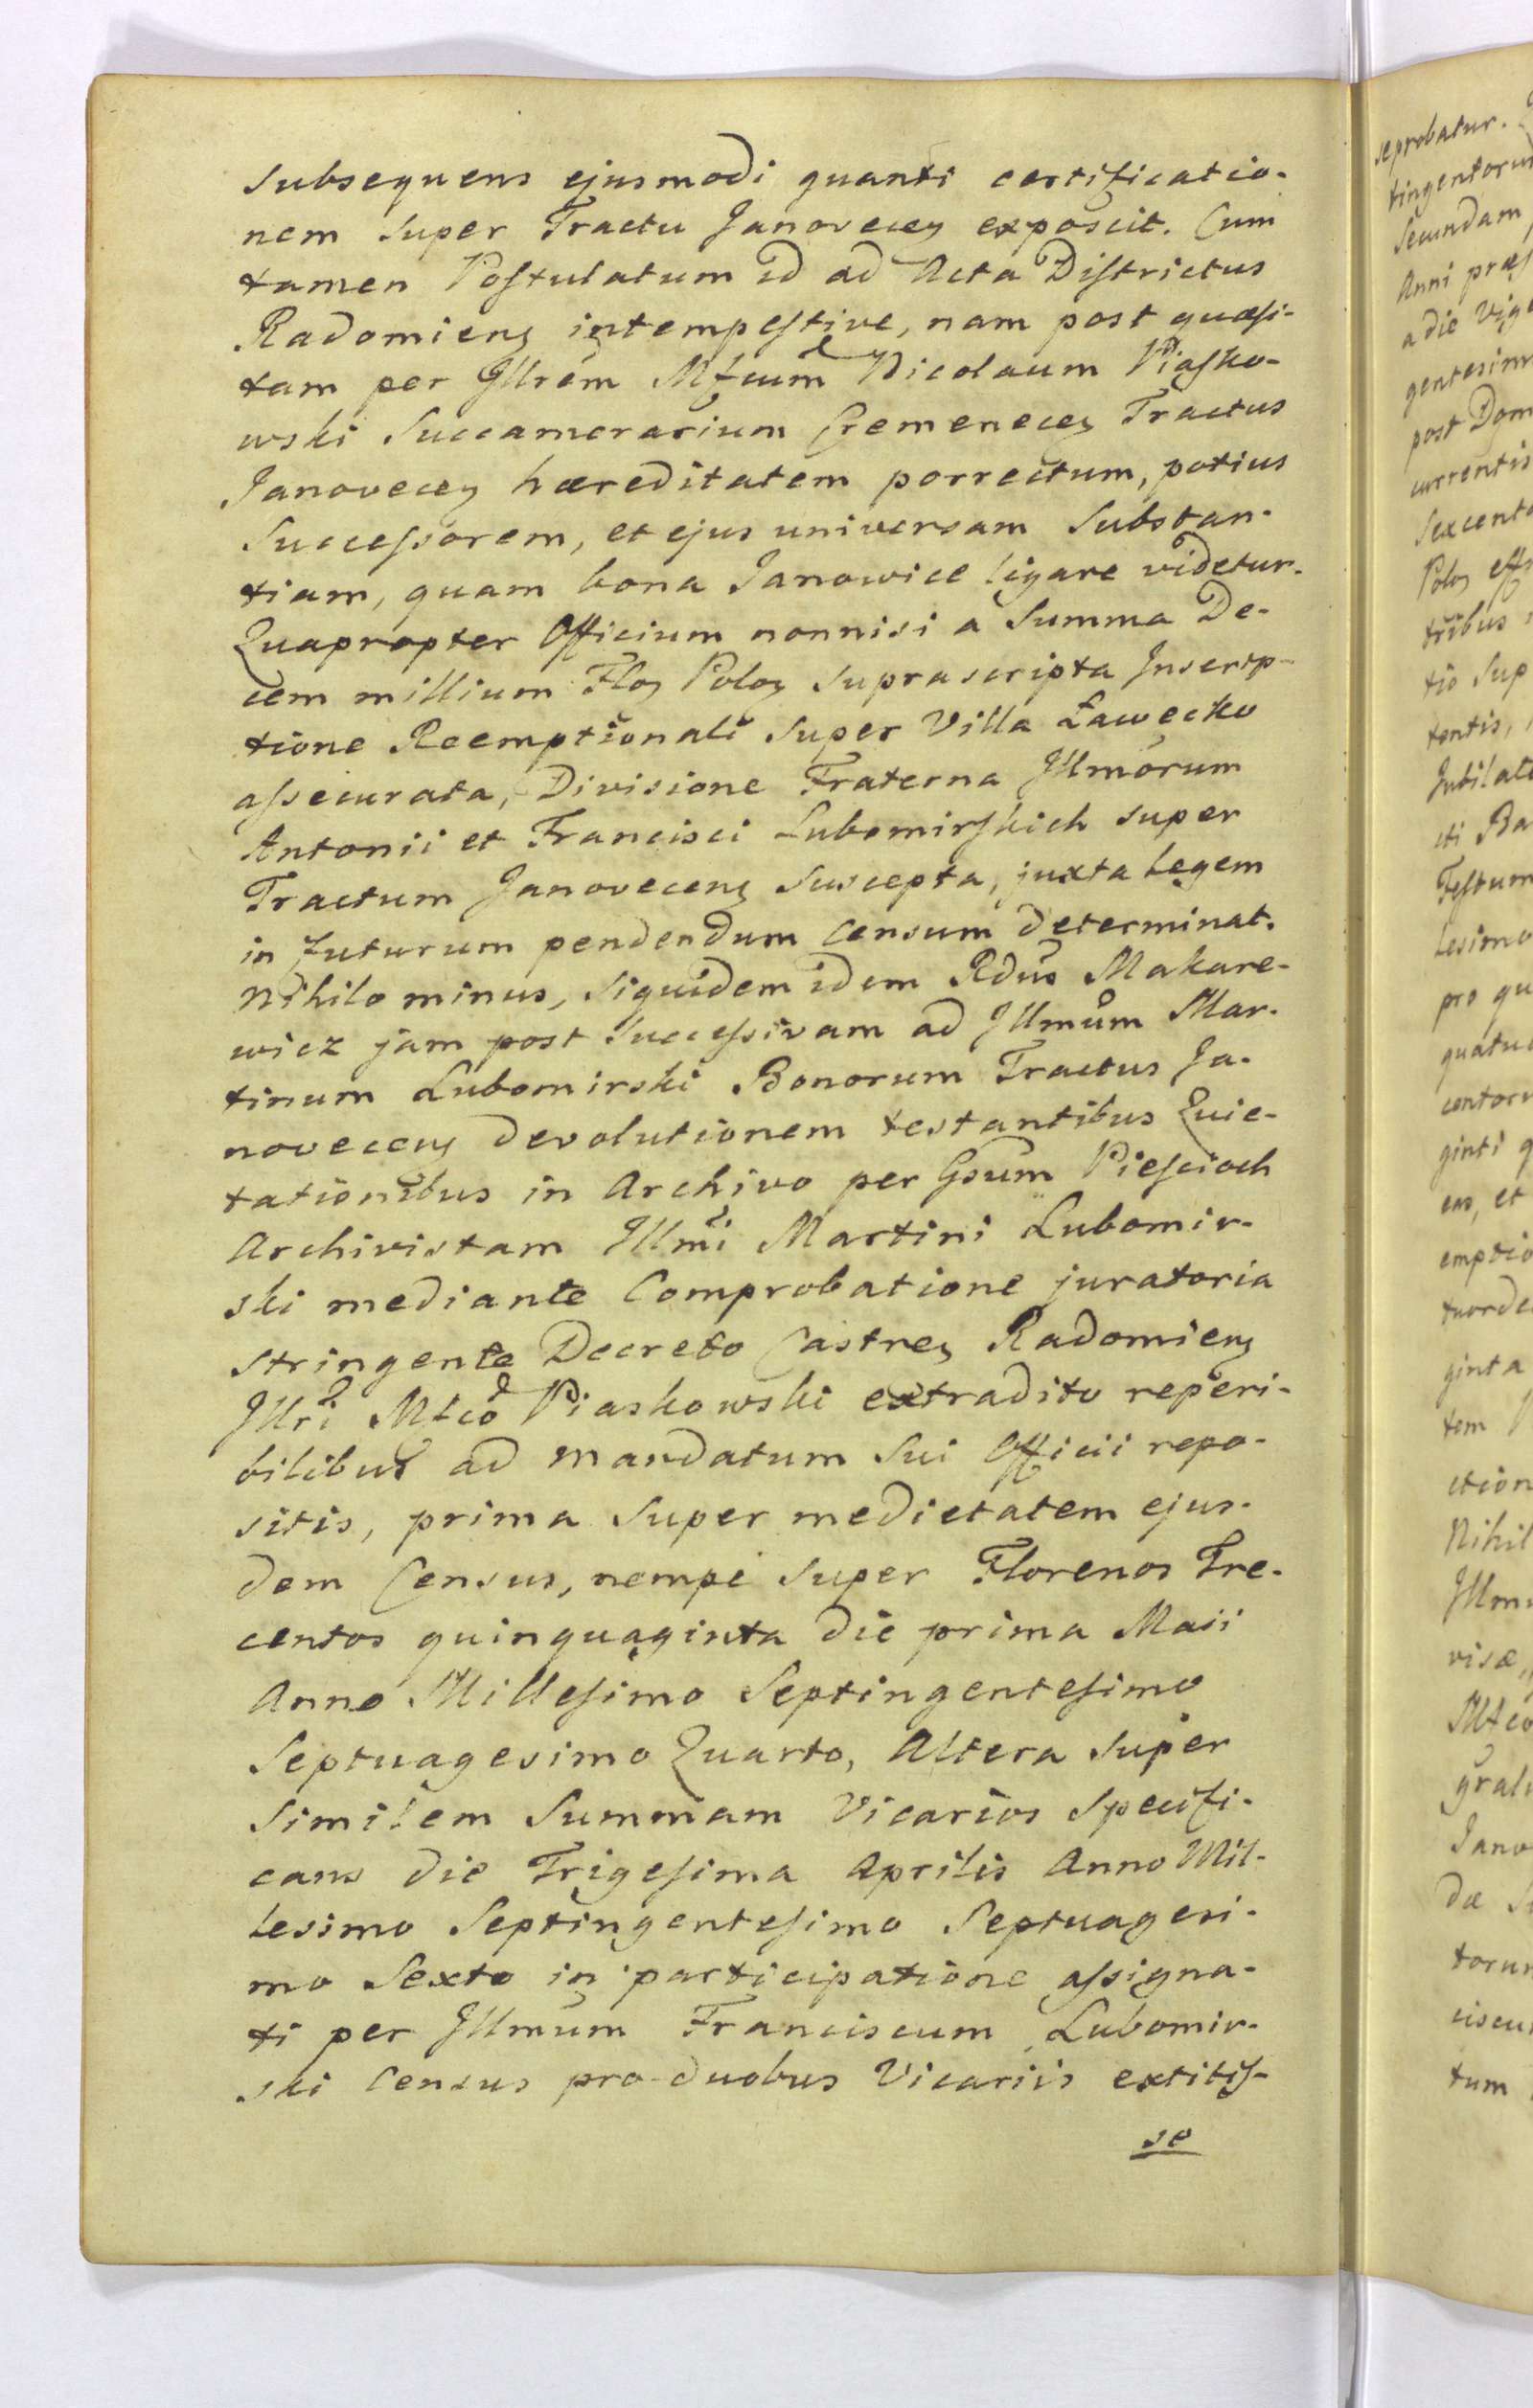 subsequens ejusmodi quanti certificatio-
nem super Tractu Janovecen exposcit. Cum
tamen Postulatum id ad Acta Districtus
Radomien intempestive, nam post quæsi-
tam per Illrem Mfcum Nicolaum Piasko-
wski Succamerarium Cremenecen Tractus
Janovecen hæreditatem porrectum, potius
Successorem, et ejus universam Substan-
tiam, quam bona Janowice ligare videtur.
Quapropter Officium nonnisi a Summa De-
cem millium Flor Polon supra scripta Inscrip-
tione Reemptionali super Villa Ławęcko
assecurata, Divisione Fraterna Illmorum
Antonii et Francisci Lubomirskich super
Tractum Janovecens suscepta, juxta Legem
in futurum pendendum Censum determinat.
Nihilo minus, siquidem idem Rdus Makare-
wicz jam post successivam ad Illmum Mar-
tinum Lubomirski Bonorum Tractus Ja-
novecens devolutionem testantibus Quie-
tationibus in Archivo per Gsum Piescioch
Archivistam Illmi Martini Lubomir-
ski mediante Comprobatione juratoria
stringente Decreto Castren Radomien
Illri Mfco Piaskowski extradito reperi-
bilibus ad mandatum sui Officii repo-
sitis, prima super medietatem ejus-
dem Census, nempe super Florenos Tre-
centos quinquaginta die prima Maii
Anno Millesimo Septingentesimo
Septuagesimo Quarto, Altera super
similem Summam Vicarios specifi-
cans die Trigesima Aprilis Anno Mil-
lesimo Septingentesimo Septuagesi-
mo Sexto in participatione assigna-
ti per Illmum Franciscum Lubomir-
ski Census pro duobus Vicariis extitis-
se
seprobatur.
Secundam
Anni præs
a die Vige
gentesim
post Dom
currentis
Sexcento
Polon
tribus
tio Sup
tentis,
Jubilat
cti Ba
Festum
lesimo
pro qu
quatuo
centor
ginti q
eas, et
emptio
tuorde
ginta
tem
ction
Nihil
Illm
visæ,
Mfco
grat
Jano
dæ
torum
ciscu
tum